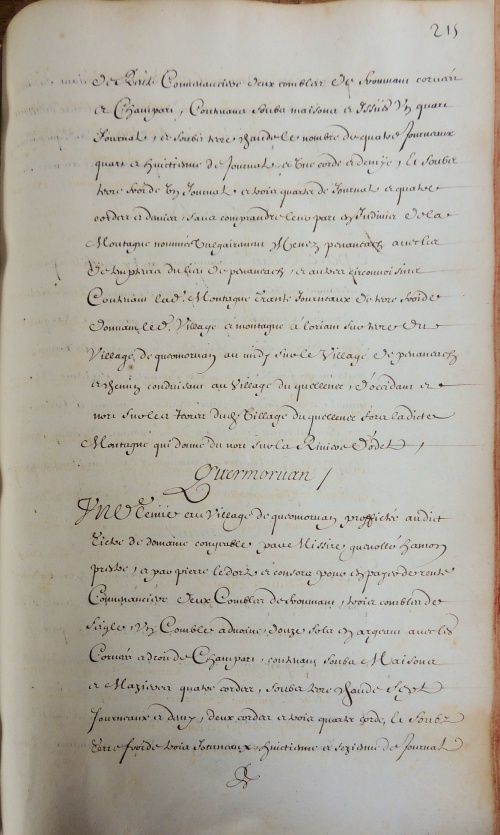 215
de Rente Convenanciere deux combles de fromant corvées
et Champart, Contenant soubz maisons et Issües Un quart
Journal, et soubz terre chaude le nombre de quatre Journeaux
quart et huictiesme de Journal et Une corde et demye, Et soubz
terre froide Un Journal et trois quarts de Journal et quatre
cordes et demies, sans comprandre leur part en Indivis de la
Montagne nommée Menez penaneach avec les
du lieu de penaneach, et autres circonvoisins
Contenant lad. Montagne trante Journeaux de terre froide
donnant led. Village et montagne à loriant sur terre du
Village de quermorvan au midy sur le Village de penaneach
et chemin conduisant au Village du quellenec, d'occidant et
nort sur les terres dud. Village du quellenec fors ladicte
Montagne qui donne du nort sur la Riviere d'odet /
Quermorvan /
Une Tenüe au Village de quermorvan proffittée audict
tiltre de domaine congeable par Missire guenollé hamon
prestre, et par pierre le dorz et consorts pour en payer de rente
Convenanciere deux Combles de fromant, trois combles de
seigle, Un Comble advoine, douze sols en argeant avec les
Corvées et droit de Champart, contenant soubz Maisons
et Mazieres quatre cordes, soubz terre chaude sept
Journeaux et demy, deux cordes et trois quarts corde, Et soubz
terre froide trois Journeaux huictiesme et seziesme de Journal